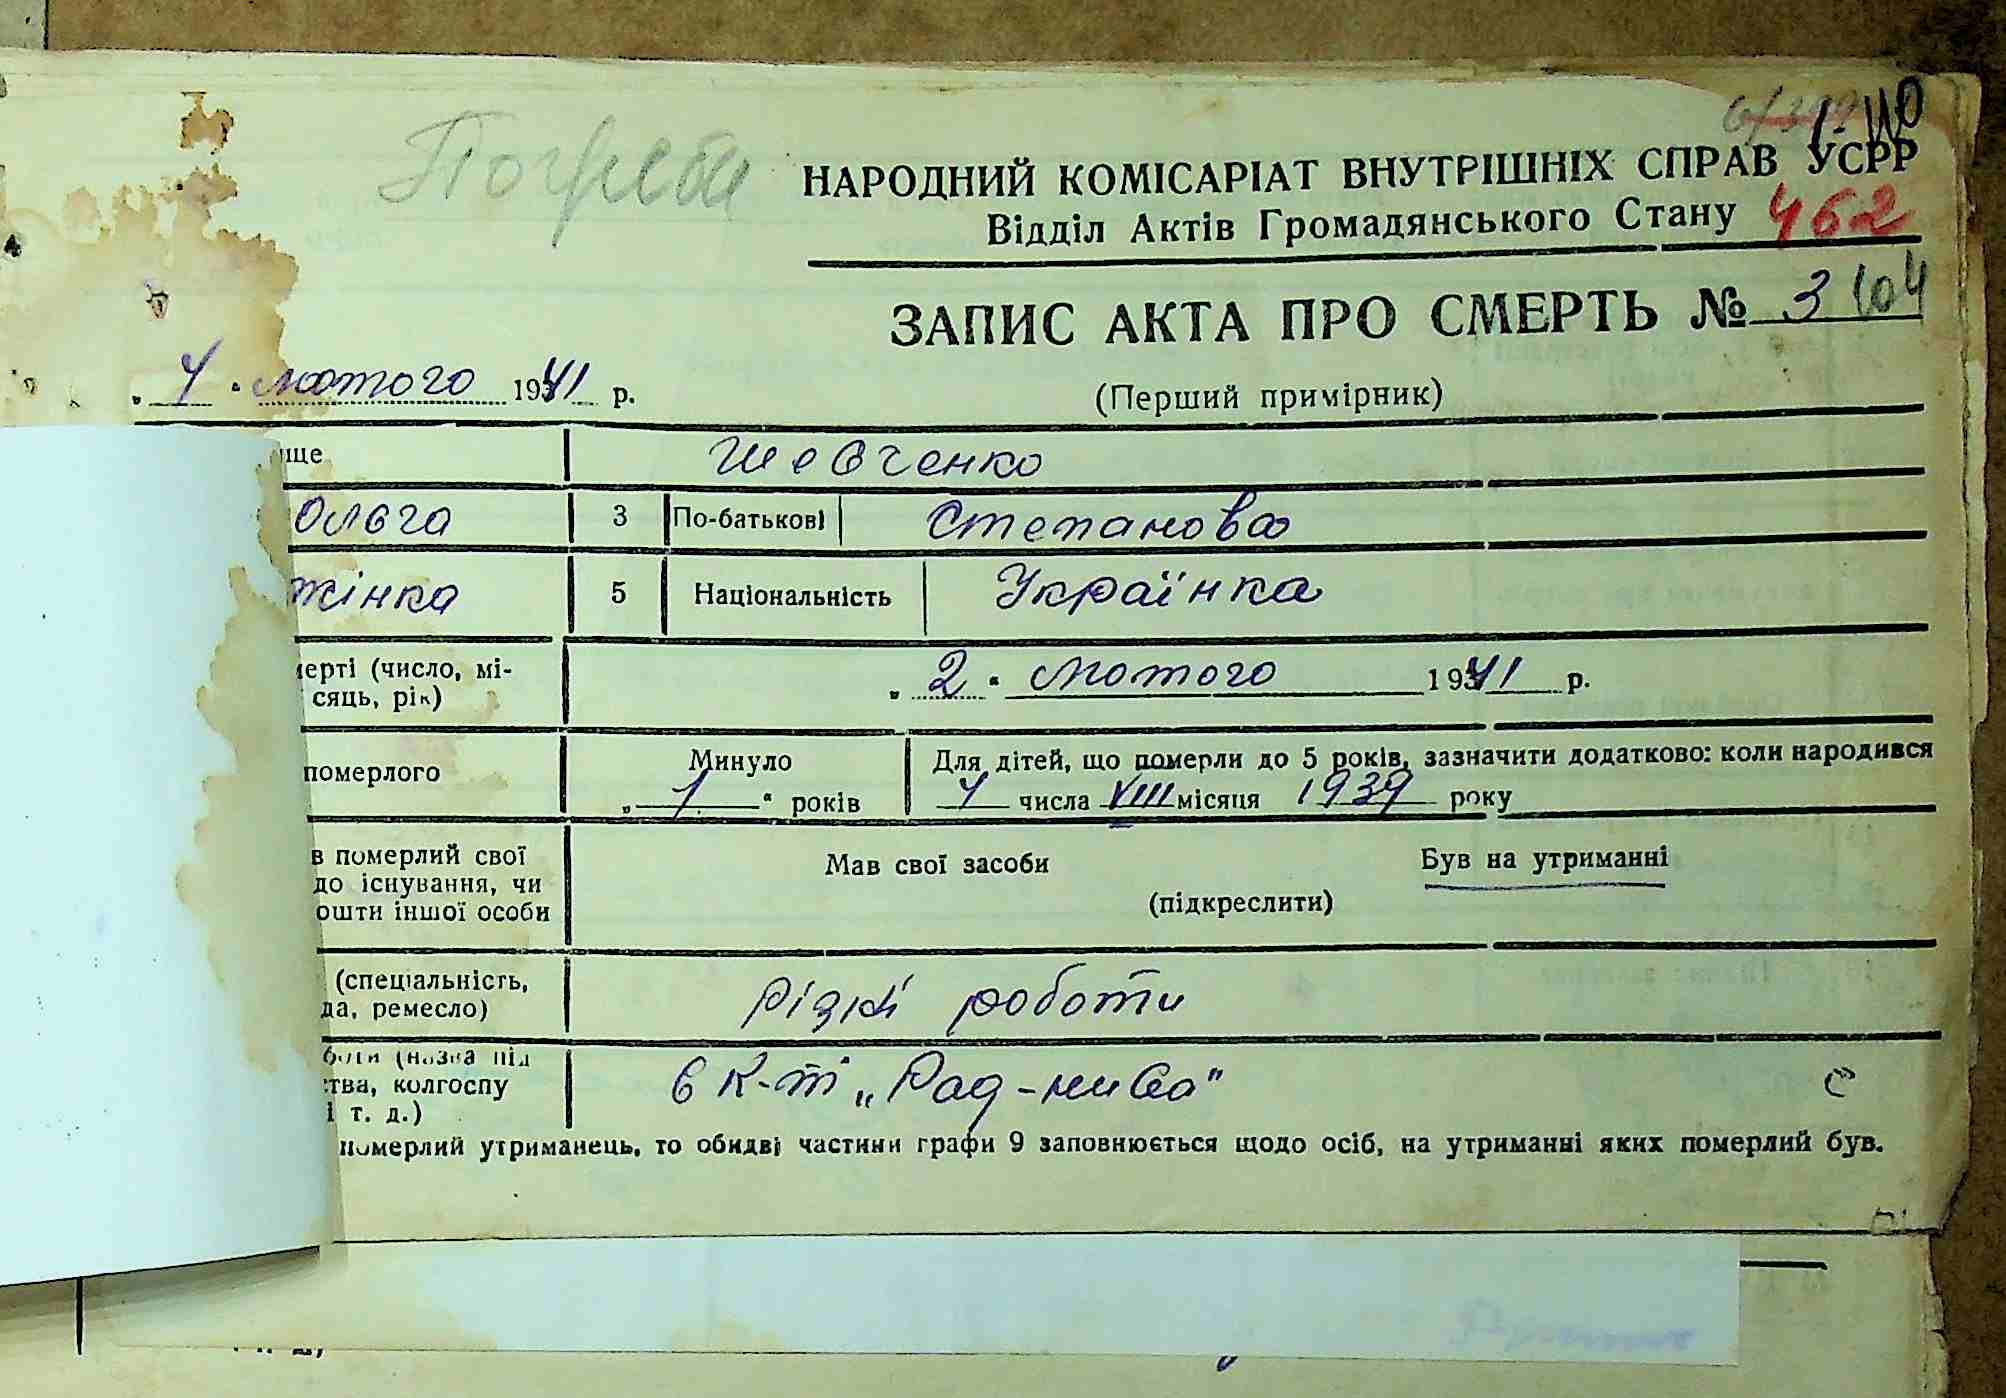 Погреби
1-110
НАРОДНИЙ КОМІСАРІАТ ВНУТРІШНІХ СПРАВ УСРР
Відділ Актів Громадянського Стану 462
ЗАПИС АКТА ПРО СМЕРТЬ № 3 104
„ 4 " лютого 1941 р.
(Перший примірник)
ище Шевченко
Ольга 3 По-батькові Степанова
жінка 5 Національність Українка
мерті (число, мі-
сяць, рік) „ 2 " лютого 1941 р.
померлого Минуло „ 1 " років
Для дітей, що померли до 5 років, зазначити додатково: коли народився
4 числа VIII місяця 1939 року
в померлий свої
до існування, чи
ошти іншої особи
Мав свої засоби Був на утриманні
(підкреслити)
(спеціальність,
да, ремесло) різні роботи
боти (назва під
ства, колгоспу
і т. д.) в к-пі „Рад-нива"
померлий утриманець, то обидві частини графи 9 заповнюється щодо осіб, на утриманні яких померлий був.